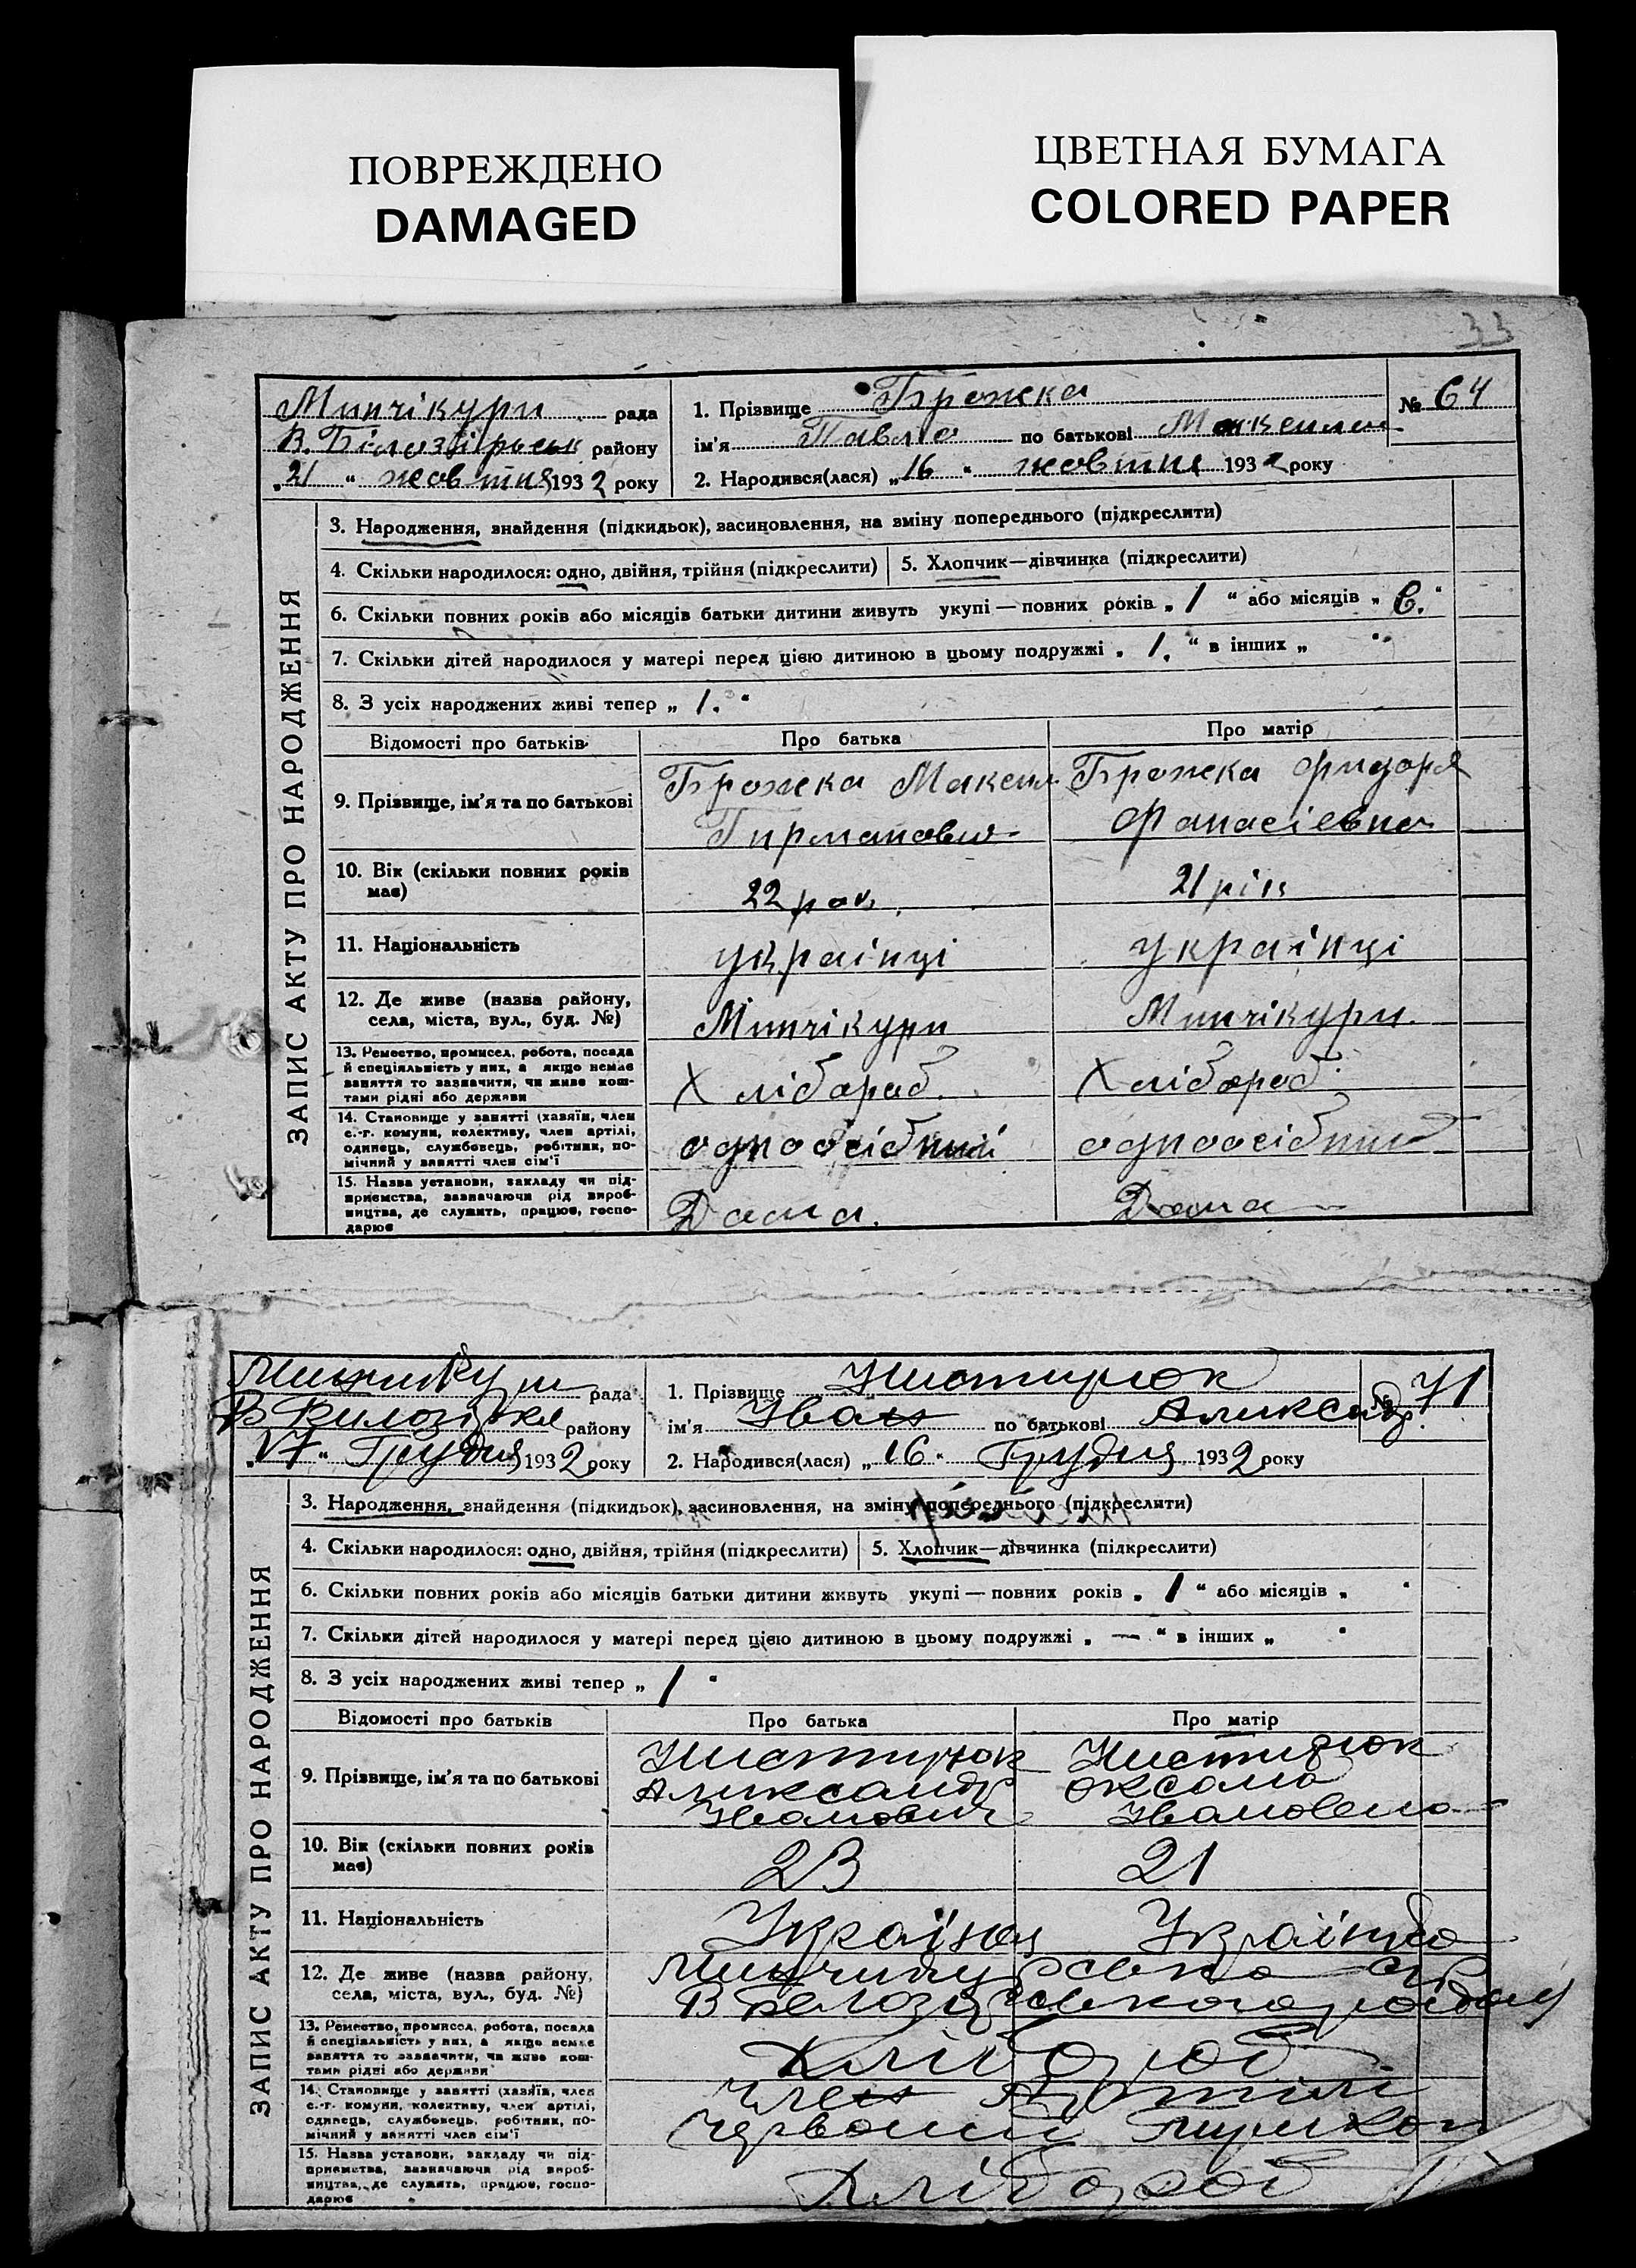 ПОВРЕЖДЕНО
DAMAGED
ЦВЕТНАЯ БУМАГА
COLORED PAPER
33
Минчікури рада
В. Білозірськ району
„21“ жовтня 1932 року
1. Прізвище Брожка
№ 64
ім'я Павло по батькові
2. Народився(лася) „16“ жовтня 1932 року
ЗАПИС АКТУ ПРО НАРОДЖЕННЯ
3. Народження, знайдення (підкидьок), засиновлення, на зміну попереднього (підкреслити)
4. Скільки народилося: одно, двійня, трійня (підкреслити)
5. Хлопчик—дівчинка (підкреслити)
6. Скільки повних років або місяців батьки дитини живуть укупі — повних років „ 1 “ або місяців „ 6. “
7. Скільки дітей народилося у матері перед цією дитиною в цьому подружжі „ 1. “ в інших „ “
8. З усіх народжених живі тепер „ 1. “
Відомості про батьків
Про батька
Про матір
9. Прізвище, ім'я та по батькові
Брожка Максим
Брожка
10. Вік (скільки повних років
має)
22 рок.
21 рік
11. Національність
українці
українці
12. Де живе (назва району,
села, міста, вул., буд. №)
Минчікури
Минчікури.
13. Ремество, промисел, робота, посада
й спеціяльність у них, а якщо немає
заняття то зазначити, чи живе кош-
тами рідні або держави
Хлібороб.
Хлібороб.
14. Становище у занятті (хазяїн, член
с.-г. комуни, колективу, член артілі,
одинець, службовець, робітник, по-
мічний у занятті член сім'ї
одноосібний
одноосібний
15. Назва установи, закладу чи під-
приємства, зазначаючи рід вироб-
ництва, де служить, працює, госпо-
дарює
Дома.
Дома
рада
району
„17“ Грудня 1932 року
1. Прізвище
№ 71
ім'я Іван по батькові Александр.
2. Народився(лася) „16“ Грудня 1932 року
ЗАПИС АКТУ ПРО НАРОДЖЕННЯ
3. Народження, знайдення (підкидьок), засиновлення, на зміну попереднього (підкреслити)
4. Скільки народилося: одно, двійня, трійня (підкреслити)
5. Хлопчик—дівчинка (підкреслити)
6. Скільки повних років або місяців батьки дитини живуть укупі — повних років „ 1 “ або місяців „ “
7. Скільки дітей народилося у матері перед цією дитиною в цьому подружжі „ — “ в інших „ “
8. З усіх народжених живі тепер „ 1 “
Відомості про батьків
Про батька
Про матір
9. Прізвище, ім'я та по батькові
Александр
Іванович
Оксана
Івановена
10. Вік (скільки повних років
має)
23
21
11. Національність
Українец
Українка
12. Де живе (назва району,
села, міста, вул., буд. №)
13. Ремество, промисел, робота, посада
й спеціяльність у них, а якщо немає
заняття то зазначити, чи живе кош-
тами рідні або держави
Хлібороб
14. Становище у занятті (хазяїн, член
с.-г. комуни, колективу, член артілі,
одинець, службовець, робітник, по-
мічний у занятті член сім'ї
член Артілі
Червоний Пирикоп
15. Назва установи, закладу чи під-
приємства, зазначаючи рід вироб-
ництва, де служить, працює, госпо-
дарює
Хлібороб